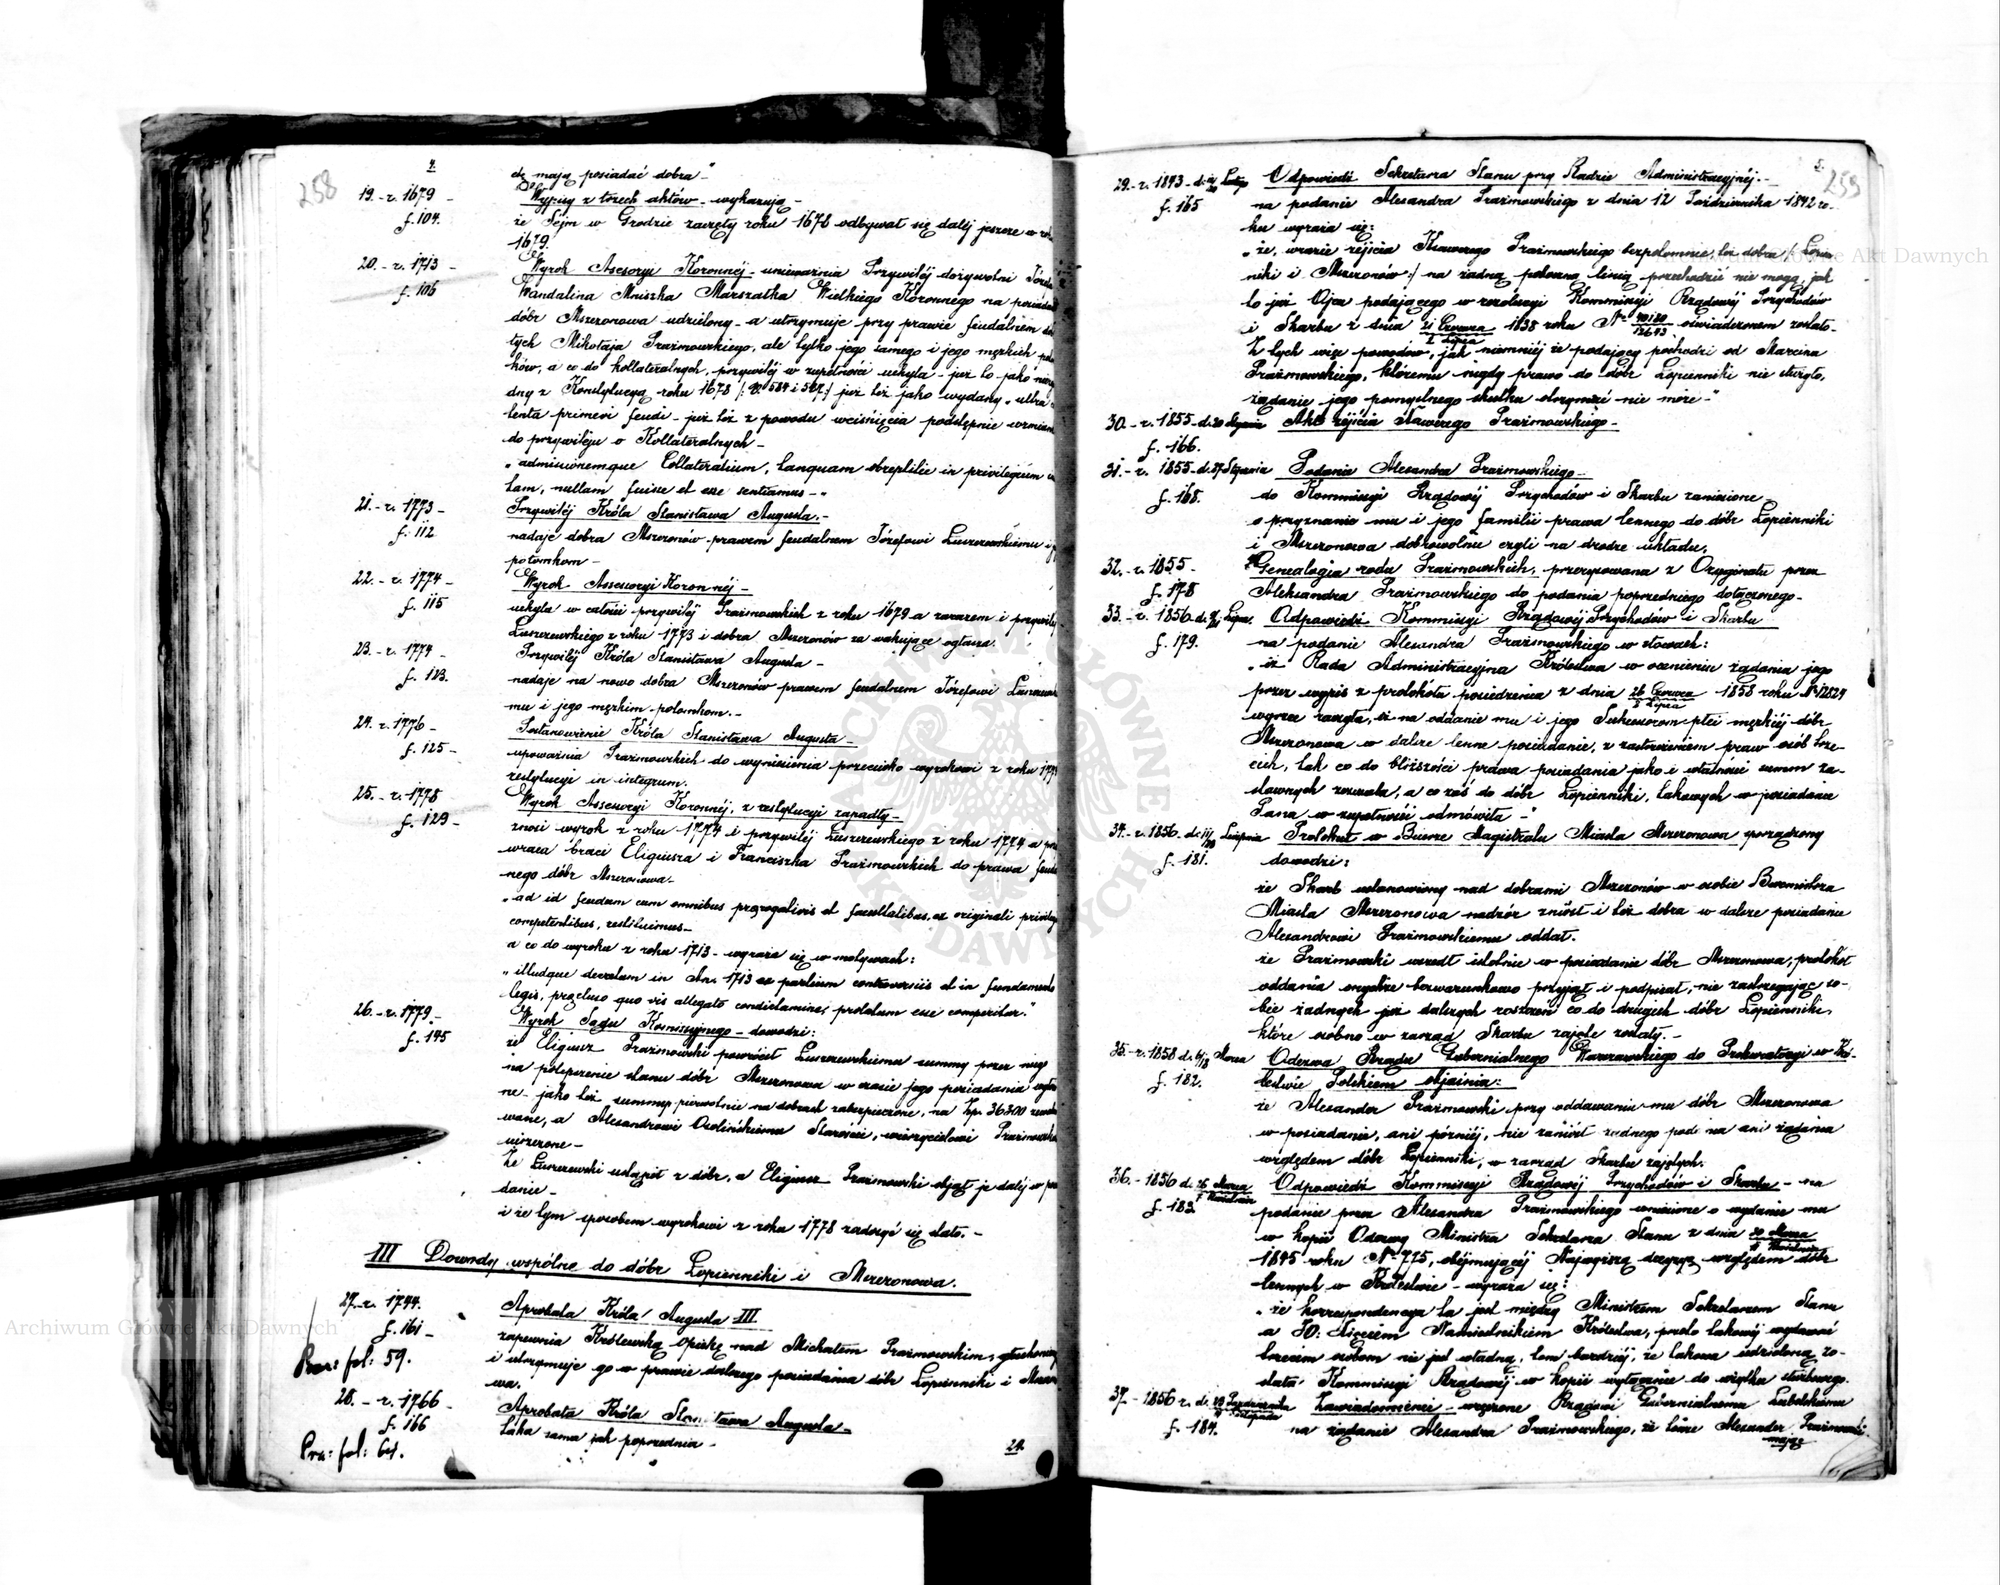 4.
258
dz mają posiadać dobra"
19.- r. 1679 - Wypisy z trzech aktów - wykazują -
f. 104. że Sejm w Grodzie zaczęty roku 1678 odbywał się dalej jeszcze w
1679.
20.- r. 1713 - Wyrok Asesoryi Koronnéj - unieważnia Przywiléj dożywotni Józefa
f. 106 Wandalina Mniszka Marszałka Wielkiego Koronnego na posiadanie
dóbr Mszczonowa udzielony - a utrzymuje przy prawie feudalnem
tych Mikołaja Prażmowskiego, ale tylko jego samego i jego męzkich
ków, a co do kollateralnych, przywiléj w zupełności uchyla - już to jako
dny z Konstytucyą roku 1678 /: V. 584 i 587:/ już też jako wydany „ultra
tenta primevi feudi - już też z powodu wciśnięcia podstępnie
do przywileju o Kollateralnych -
„admissionemque Collateralium, tanquam obreptitie in privilegium
tam, nullam fuisse et esse sentiamus -"
21.- r. 1773 - Przywiléj Króla Stanisława Augusta.-
f. 112 nadaje dobra Mszczonów prawem feudalnem Józefowi Łuszczewskiemu i
potomkom -
22.- r. 1774 - Wyrok Assesoryi Koronnéj -
f. 115 uchyla w całości przywiléj Prażmowskich z roku 1679 a zarazem i
Łuszczewskiego z roku 1773 i dobra Mszczonów za wakujące ogłasza.
23.- r. 1774 - Przywiléj Króla Stanisława Augusta -
f. 123. nadaje na nowo dobra Mszczonów prawem feudalnem Józefowi
mu i jego męzkim potomkom.-
24. r. 1776 - Postanowienie Króla Stanisława Augusta -
f. 125 - upoważnia Prażmowskich do wyniesienia przeciwko wyrokowi z roku 1774
restytucyi in integrum.
25.- r. 1778 - Wyrok Assesoryi Koronnéj, z restytucyi zapadły -
f. 129 - znosi wyrok z roku 1774 i przywiléj Łuszczewskiego z roku 1774 a
wraca braci Eligiusza i Franciszka Prażmowskich do prawa
nego dóbr Mszczonowa.-
„ad id feudum cum omnibus prerogativis et facultatibus, ex originali
competentibus, restituimus -
a co do wyroku z roku 1713 - wyraża się w motywach:
„illudque decretum in Ani 1713 ex partium controversiis et in fundamento
legis, praecluso quo vis allegato condictamine, prolatum esse comperitur."
26.- r. 1779.- Wyrok Sądu Komissyjnego - dowodzi:
f. 145 że Eligiusz Prażmowski powrócił Łuszczewskiemu summy przez niego
na polepszenie stanu dóbr Mszczonowa w czasie jego posiadania
ne - jako też summy pierwotnie na dobrach zabezpieczone, na Złp. 36300
wane, a Alexandrowi Ossolińskiemu Staroście, wierzycielowi
uiszczone -
Że Łuszczewski ustąpił z dóbr, a Eligiusz Prażmowski objął je dalej w
danie -
i że tym sposobem wyrokowi z roku 1778 zadosyć się stało.-
III Dowody wspólne do dóbr Łopienniki i Mszczonowa.
27.- r. 1744. Aprobata Króla Augusta III.
f. 161 - zapewnia Królewską opiekę nad Michałem Prażmowskim, głuchoniemym
Prez: fol: 59. i utrzymuje go w prawie dalszego posiadania dóbr Łopienniki i
wa.
28.- r. 1766 - Aprobata Króla Stanisława Augusta -
f. 166 táka sama jak poprzednia -
Prz: fol: 64.
29.
5.
259
29.- r. 1843 - d. Lutego Odpowiedź Sekretarza Stanu przy Radzie Administracyjnéj.-
f. 165 na podanie Alexandra Prażmowskiego z dnia 12 Października 1842 ro-
ku wyraża się:
„że, w razie zejścia Xawerego Prażmowskiego bezpotomnie, te dobra /: Łopien-
niki i Mszczonów:/ na żadną poboczną linię przechodzić nie mogą, jak
to już Ojcu podającego w rezolucyi Kommissyi Rządowéj Przychodów
i Skarbu z dnia 21 Czerwca / 2 Lipca 1838 roku Nr 40180/12673 oświadczonem zosta-
Z tych więc powodów, jak niemniéj że podający pochodzi od Marcina
Prażmowskiego, któremu nigdy prawo do dóbr Łopienniki nie służyło,
żądanie jego pomyślnego skutku otrzymać nie może -"
30.- r. 1855 - d. 20 Stycznia Akt zejścia Xawerego Prażmowskiego -
f. 166.
31.- r. 1855 - d. 27 Stycznia Podanie Alexandra Prażmowskiego -
f. 168. do Kommissyi Rządowéj Przychodów i Skarbu zaniesione
o przyznanie mu i jego familii prawa lennego do dóbr Łopienniki
i Mszczonowa dobrowolnie czyli na drodze układu.
32.- r. 1855 - Genealogia rodu Prażmowskich, przerysowana z Oryginału przez
f. 178 Aleksandra Prażmowskiego do podania poprzedniego dołączonego -
33.- r. 1856 d. Lipca. Odpowiedź Kommissyi Rządowéj Przychodów i Skarbu
f. 179. na podanie Alexandra Prażmowskiego w słowach:
„iż Rada Administracyjna Królestwa w ocenieniu żądania jego
przez wypis z protokółu posiedzenia z dnia 26 Czerwca / 8 Lipca 1858 roku Nr 12824
wyrzec raczyła, iż na oddanie mu i jego Sukcesorom płci męzkiéj dóbr
Mszczonowa w dalsze lenne posiadanie, z zastrzeżeniem praw osób trze-
cich, tak co do bliższości prawa posiadania jako i własności summ za-
stawnych zezwala, a co zaś do dóbr Łopienniki, takowych w posiadanie
Pana w zupełności odmówiła -"
34.- r. 1856 d. 11/23 Sierpnia Protokół w Biurze Magistratu Miasta Mszczonowa porządzony
f. 181. dowodzi:
że Skarb ustanowiony nad dobrami Mszczonów w osobie Burmistrza
Miasta Mszczonowa nadzór zniósł i też dobra w dalsze posiadanie
Alexandrowi Prażmowskiemu oddał.
że Prażmowski wszedł istotnie w posiadanie dóbr Mszczonowa, protokół
oddania onychże bezwarunkowo przyjął i podpisał, nie zastrzegając so-
bie żadnych już dalszych roszczeń co do drugich dóbr Łopienniki,
które osobno w zarząd Skarbu zajęte zostały.-
35.- r. 1858 d. 6/18 Marca Odezwa Rządu Gubernialnego Warszawskiego do Prokuratoryi w Kró-
f. 182. lestwie Polskiem objaśnia:
że Alexander Prażmowski przy oddawaniu mu dóbr Mszczonowa
w posiadanie, ani późniéj, nie zaniósł żadnego poda nia ani żądania
względem dóbr Łopienniki, w zarząd Skarbu zajętych.
36.- 1856 d. 26 Marca / 7 Kwietnia Odpowiedź Kommissyi Rządowéj Przychodów i Skarbu - na
f. 183 podanie przez Alexandra Prażmowskiego wniesione o wydanie mu
w kopii Odezwy Ministra Sekretarza Stanu z dnia 30 Marca / 11 Kwietnia
1845 roku Nr 775, obejmującéj Najwyższą decyzyę względem dóbr
lennych w Królestwie - wyraża się:
„że korrespondencya ta jest między Ministrem Sekretarzem Stanu
a JO: Xięciem Namiestnikiem Królestwa, przeto takowéj wydawać
trzecim osobom nie jest władną, tem bardziéj, że takowa udzieloną zo-
stała Kommissyi Rządowéj w kopii wyłącznie do użytku służbowego.
37.- 1856 r. d. 29 Października / 10 Listopada Zawiadomienie - wręczone Rządowi Gubernialnemu Lubelskiemu
f. 184. na żądanie Alexandra Prażmowskiego, że tenże Alexander Prażmowski
mając
Archiwum Główne Akt Dawnych